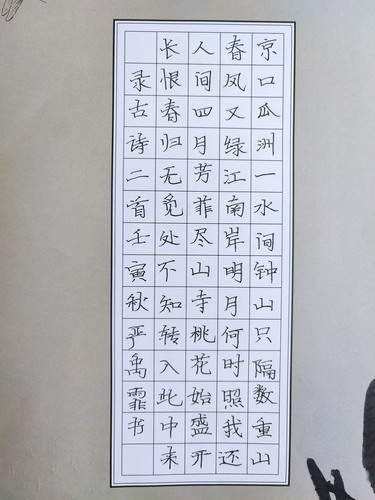 京口瓜洲一水间钟山只隔数重山
春风又绿江南岸明月何时照我还
人间四月芳菲尽山寺桃花始盛开
长恨春归无觅处不知转入此中来
录古诗二首壬寅秋严禹霏书